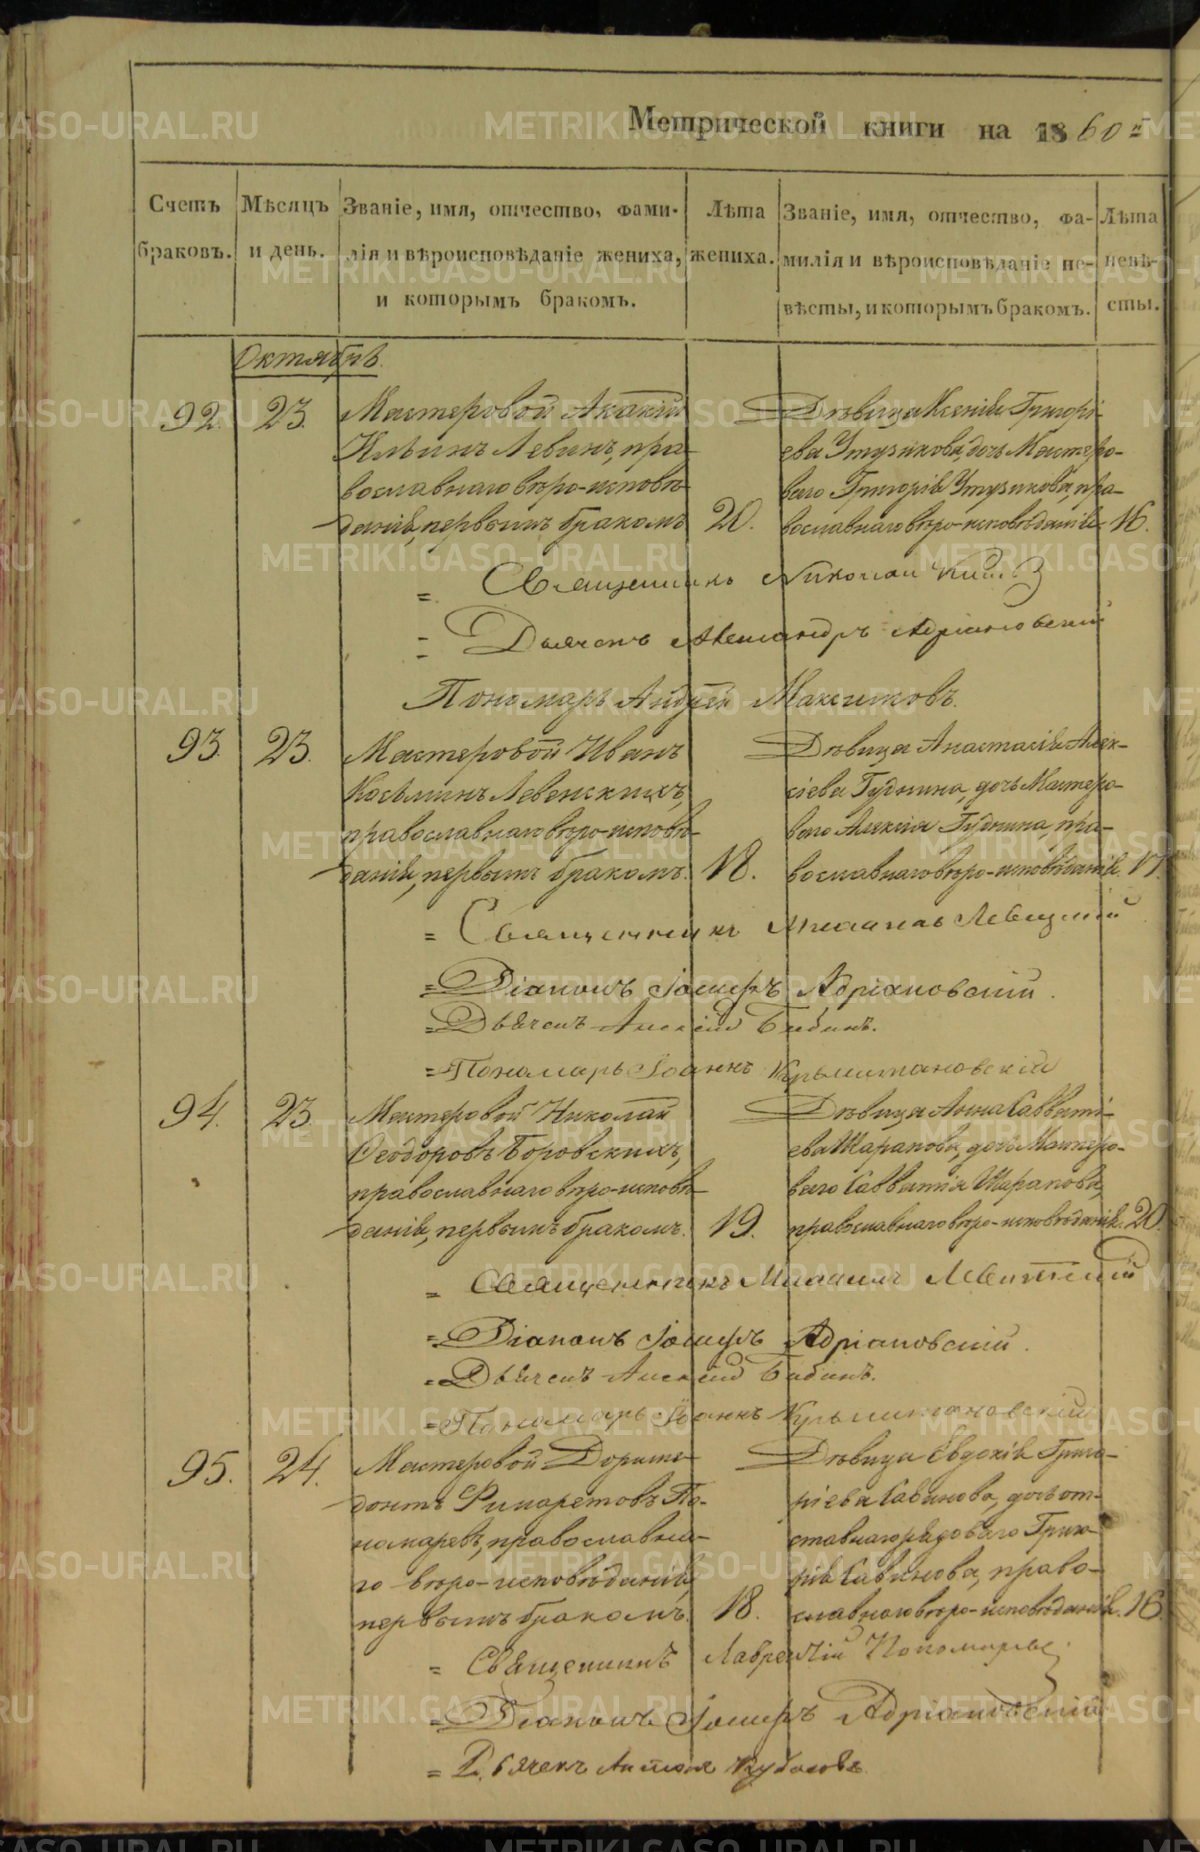 Метрической книги на 1860 г.
Счетъ браковъ.
Мѣсяцъ и день.
Званіе, имя, отчество, фами-
лія и вѣроисповѣданіе жениха,
и которымъ бракомъ.
Лѣта жениха.
Званіе, имя, отчество, фа-
милія и вѣроисповѣданіе не-
вѣсты, и которымъ бракомъ.
Лѣта невѣ-
сты.
Октябрь.
92. 23.
Мастеровой Акакій
Ильинъ Левинъ, пра-
вославнаго вѣро-исповѣ-
данія, первымъ бракомъ 20.
Дѣвица Ксенія Григорі-
ева Утузикова, дочь Мастеро-
ваго Григорія Утузикова, пра-
вославнаго вѣро-исповѣданія. 16.
Священникъ Николай
Дьячокъ Александръ Адріановскій
Пономарь Андрей Максимовъ.
93. 23.
Мастеровой Иванъ
Косьминъ Левенскихъ,
православнаго вѣро-исповѣ-
данія, первымъ бракомъ. 18.
Дѣвица Анастасія Алек-
сіева Гуднина, дочь Мастеро-
ваго Алексія Гуднина, пра-
вославнаго вѣро-исповѣданія. 17.
= Священникъ Михаилъ Левицкій
= Діаконъ Іосифъ Адріановскій.
= Дьячекъ Алексій Бабинъ.
= Пономарь Іоаннъ
94. 23.
Мастеровой Николай
Ѳеодоровъ Боровскихъ,
православнаго вѣро-исповѣ-
данія, первымъ бракомъ. 19.
Дѣвица Анна Савваті-
ева Шарапова, дочь Мастеро-
ваго Савватія Шарапова,
православнаго вѣро-исповѣданія. 20.
= Священникъ Михаилъ Левитскій
= Діаконъ Іосифъ Адріановскій.
= Дьячекъ Алексій Бабинъ.
= Пономарь Іоаннъ
95. 24.
Мастеровой Дориме-
донтъ Филаретовъ По-
номаревъ, православна-
го вѣро-исповѣданія,
первымъ бракомъ. 18.
Дѣвица Евдокія Григо-
ріева Савинова, дочь от-
ставнаго рядоваго Григо-
рія Савинова, право-
славнаго вѣро-исповѣданія. 16.
= Священникъ Лаврентій Пономаревъ.
= Діаконъ Іосифъ Адріановскій
= Дьячекъ
METRIKI.GASO-URAL.RU